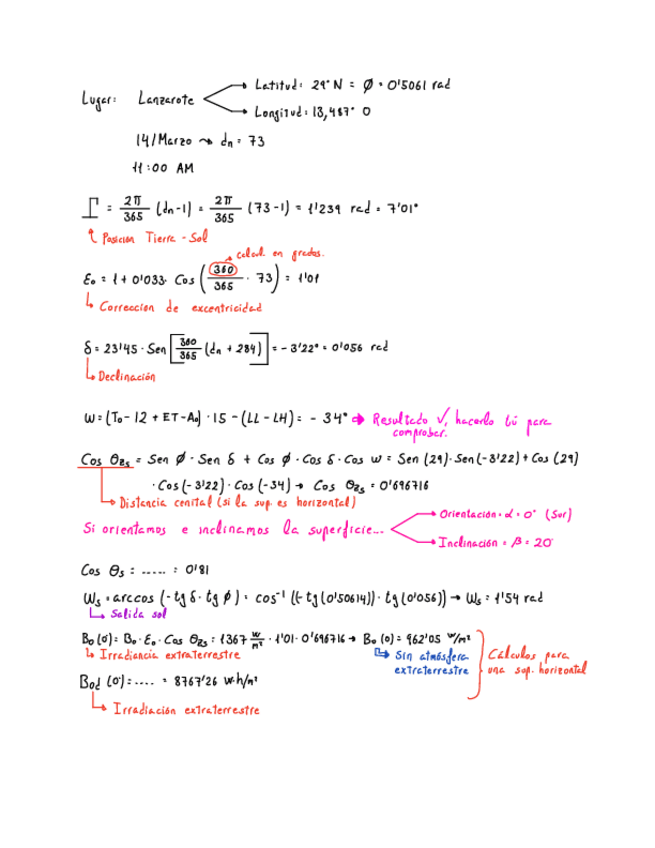 Latitud: 29° N = ϕ = 0'5061 rad
Lugar: Lanzarote
Longitud: 13,487° O
14/Marzo ⤳ dn = 73
11:00 AM
Γ = 2π/365 (dn-1) = 2π/365 (73-1) = 1'239 rad = 7'01°
Posición Tierra-Sol
calcul. en grados.
E₀ = 1 + 0'033· Cos (360/365 · 73) = 1'01
Corrección de excentricidad
δ = 23'45 · Sen [360/365 (dn + 284)] = -3'22° = 0'056 rad
Declinación
W = (T₀ - 12 + ET - A₀) · 15 - (LL - LH) = - 34° ➔ Resultado √, hacerlo tú para
comprobar.
Cos θzs = Sen ϕ · Sen δ + Cos ϕ · Cos δ · Cos w = Sen (29) · Sen (-3'22) + Cos (29)
· Cos (-3'22) · Cos (-34) → Cos θzs = 0'696716
Distancia cenital (si la sup. es horizontal)
Orientación = α = 0° (Sur)
Si orientamos e inclinamos la superficie...
Inclinación = β = 20°
Cos θs = ..... = 0'81
Ws = arccos (- tg δ · tg ϕ) = cos⁻¹ ((-tg (0'50614)) · tg (0'056)) → Ws = 1'54 rad
Salida sol
B₀ (0) = B₀ · E₀ · Cos θzs = 1367 W/m² · 1'01 · 0'696716 → B₀ (0) = 962'05 W/m²
Irradiancia extraterrestre
Sin atmósfera
extraterrestre
Cálculos para
una sup. horizontal
B₀d (0) = .... = 8767'26 W·h/m²
Irradiación extraterrestre